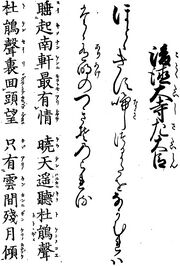 後徳大寺左大臣
ほとゝきす鳴つるかたをなかむれは
たゝ有明のつきそのこれる
暁天遥聴杜鵑聲
睡起南軒最有情
杜鵑聲裏回頭望
只有雲間殘月傾